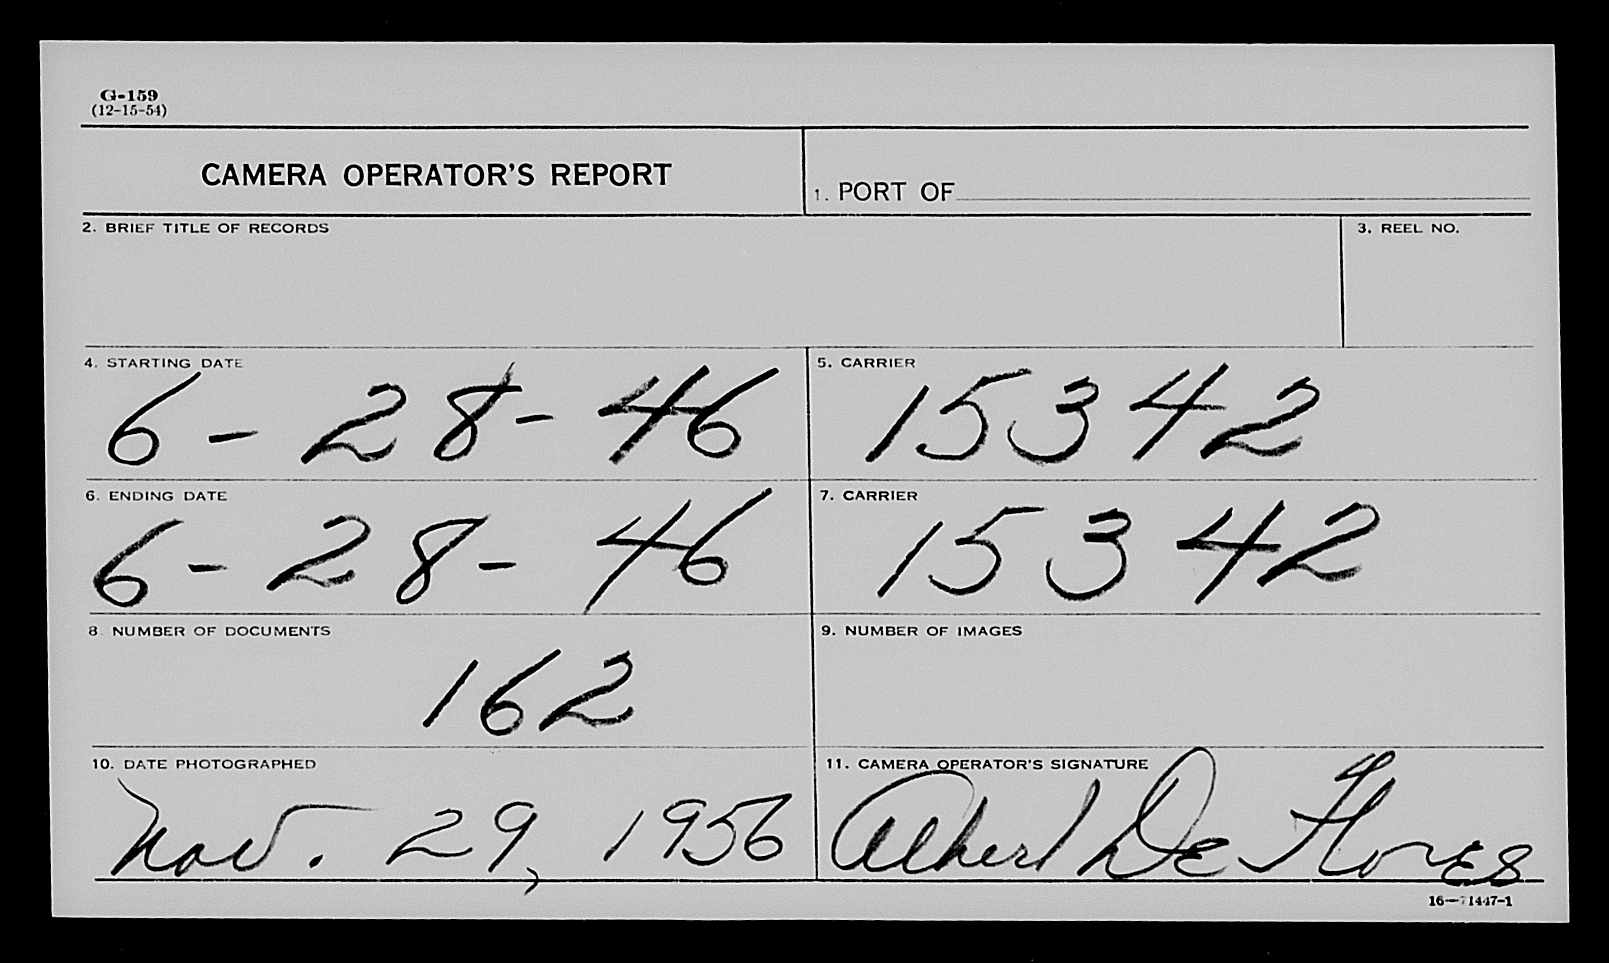 G-159
(12-15-54)
CAMERA OPERATOR'S REPORT
1. PORT OF
2. BRIEF TITLE OF RECORDS
3. REEL NO.
4. STARTING DATE
6-28-46
5. CARRIER
15342
6. ENDING DATE
6-28-46
7. CARRIER
15342
8. NUMBER OF DOCUMENTS
162
9. NUMBER OF IMAGES
10. DATE PHOTOGRAPHED
Nov. 29, 1956
11. CAMERA OPERATOR'S SIGNATURE
Albert De Flores
16—71447-1